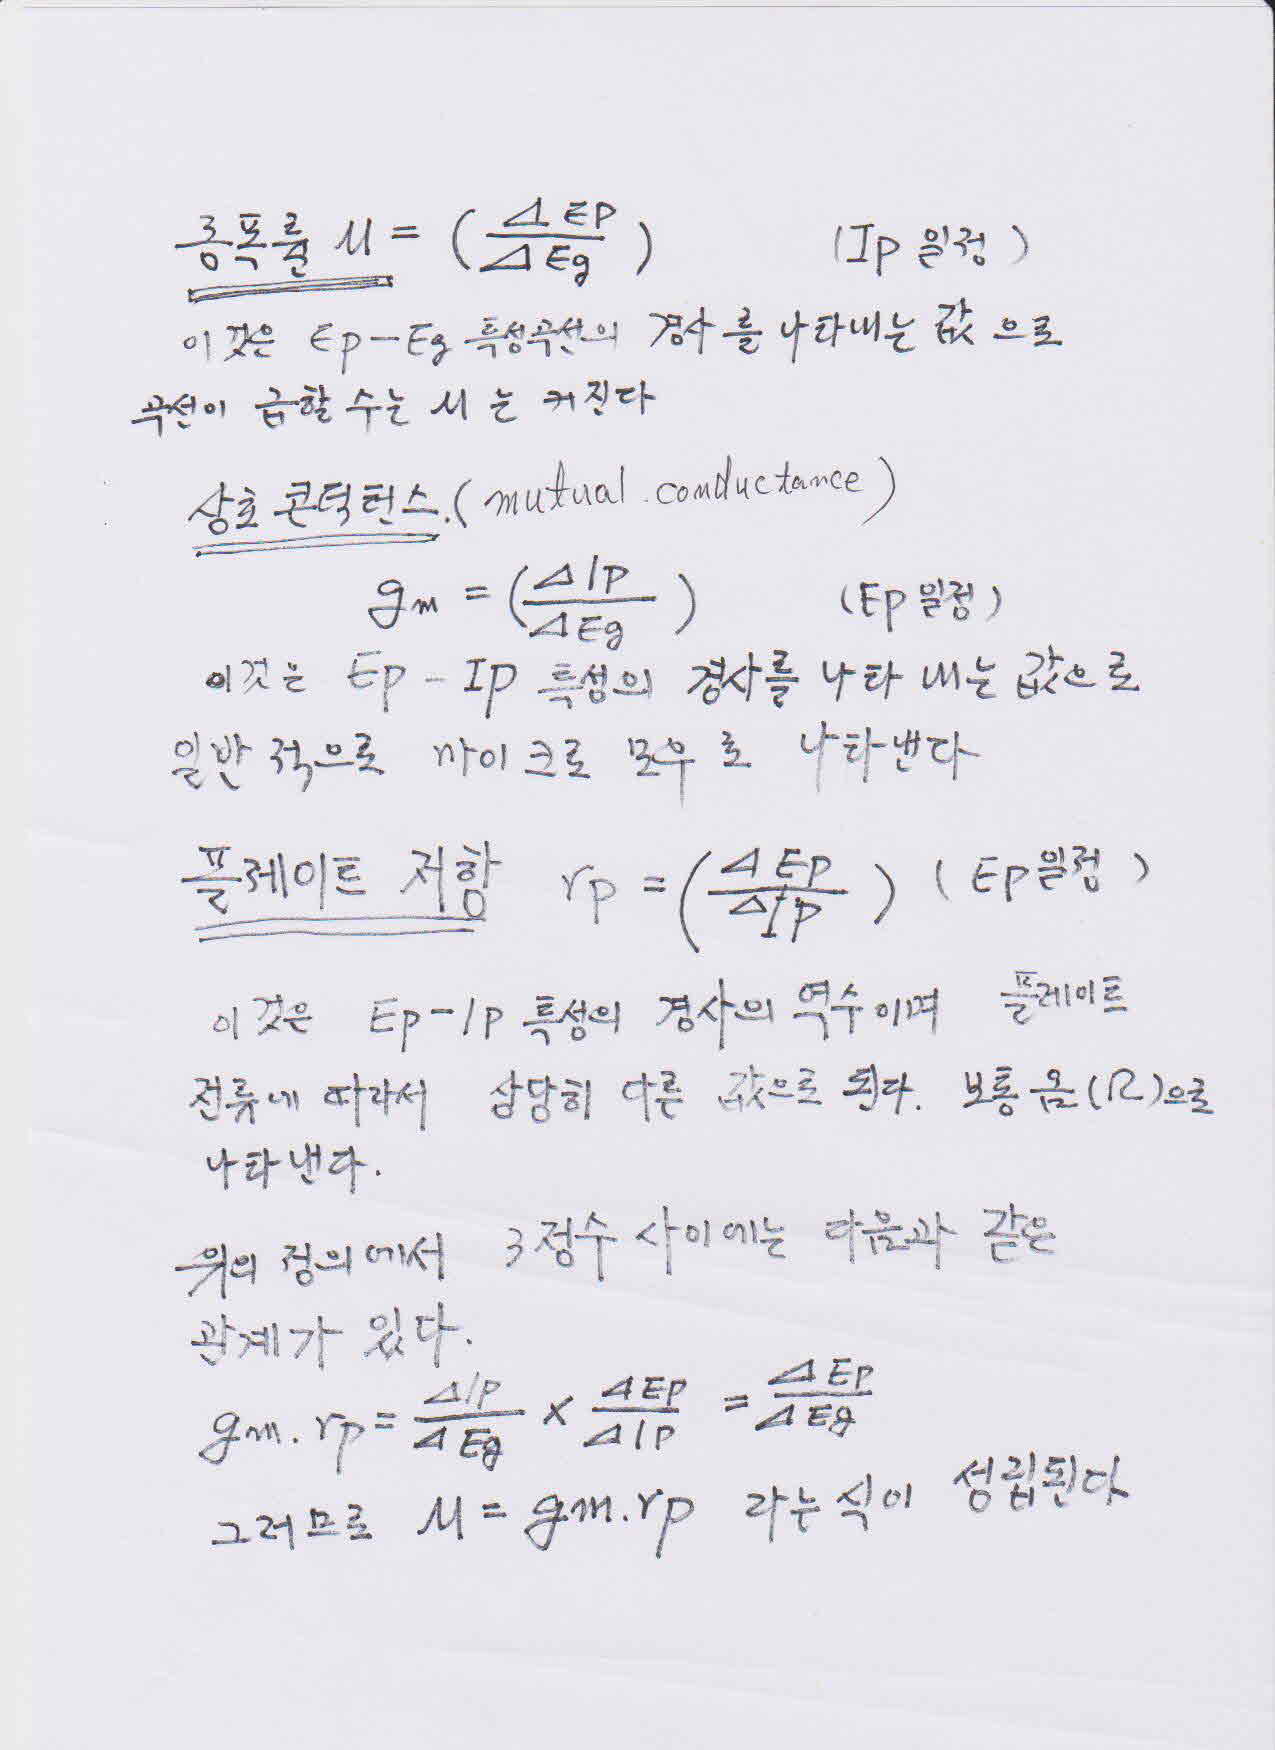 증폭률 μ = (ΔEP/ΔEg) (Ip 일정)
이것은 Ep-Eg 특성곡선의 경사를 나타내는 값으로
곡선이 급할수는 μ는 커진다
상호콘덕턴스.(mutual.conductance)
gm = (ΔIp/ΔEg) (Ep일정)
이것은 Ep-Ip 특성의 경사를 나타내는 값으로
일반적으로 마이크로 모우로 나타낸다
플레이트 저항 rp = (ΔEp/ΔIp) (Ep일정)
이것은 Ep-Ip 특성의 경사의 역수이며 플레이트
전류에 따라서 상당히 다른 값으로 된다. 보통 옴(Ω)으로
나타낸다.
위의 정의에서 3정수 사이에는 다음과 같은
관계가 있다.
gm.rp = ΔIp/ΔEg × ΔEp/ΔIp = ΔEp/ΔEg
그러므로 μ = gm.rp 라는 식이 성립된다